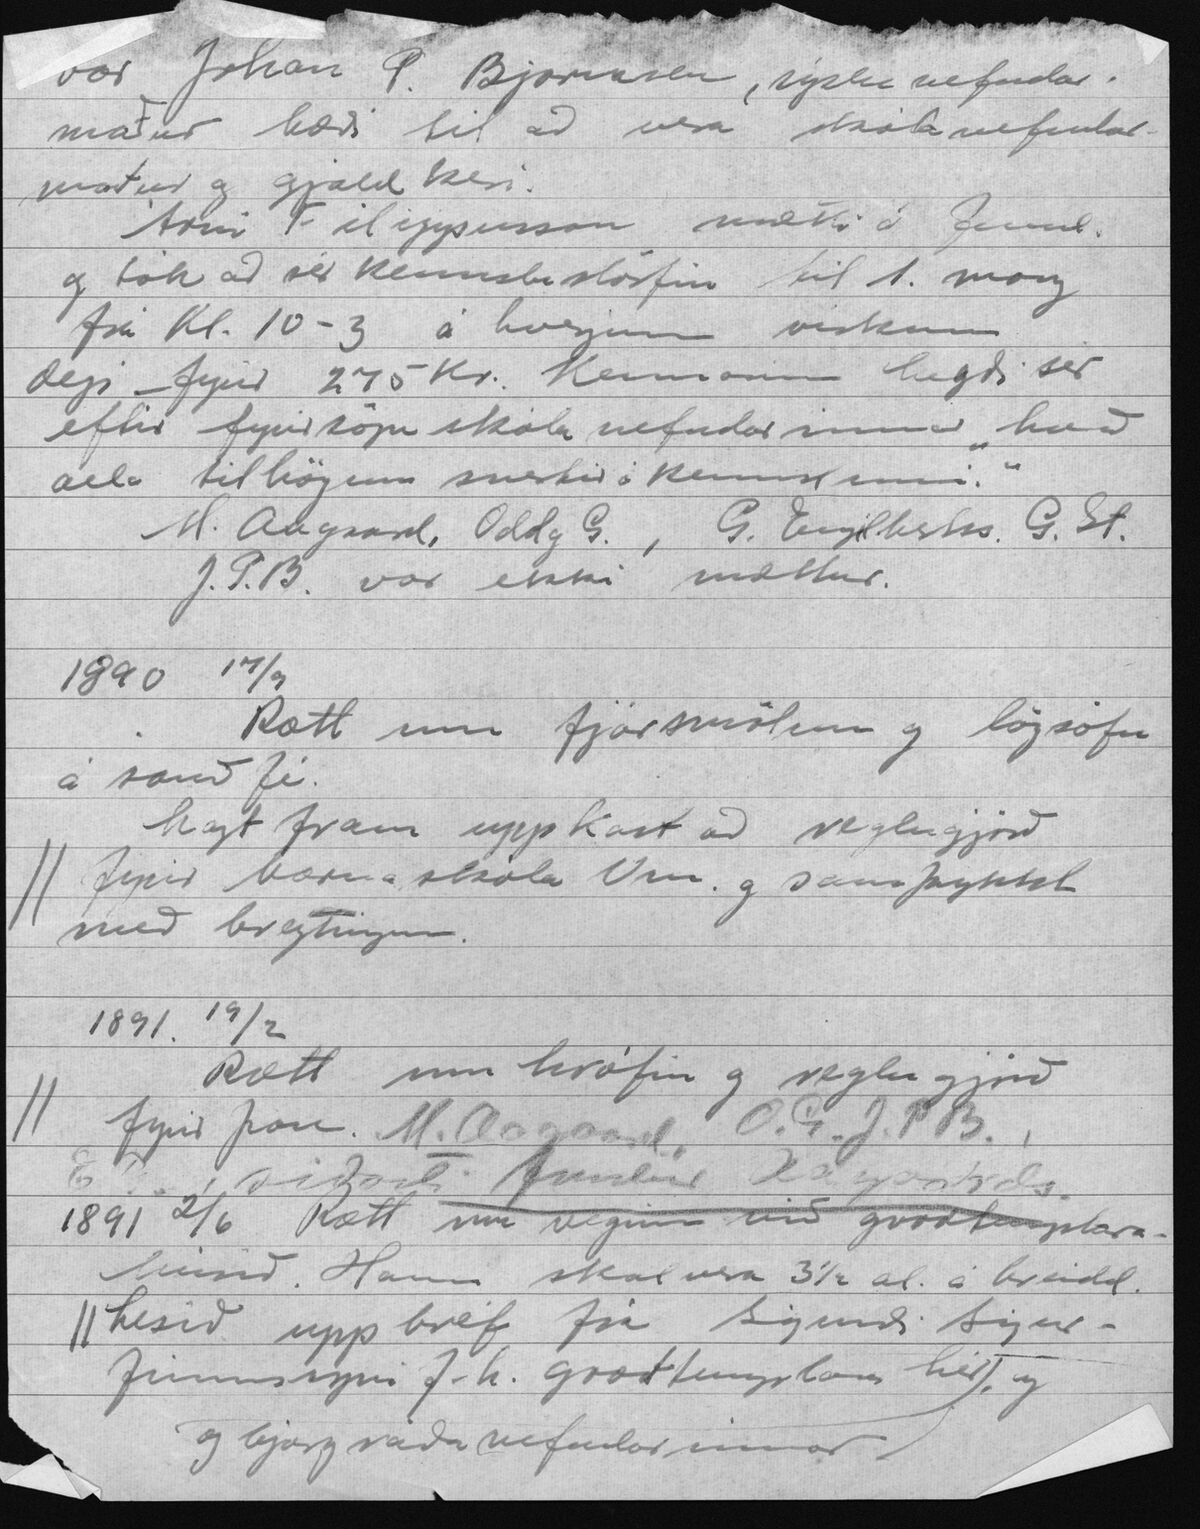 var Johan P. Bjarnasen, sýslunefndar-
maður bæði til að vera skólanefndar-
maður og gjaldkeri.
Árni Filippusson mætti á fund.
og tók að sér kennslustörfin til 1. marz
frá Kl. 10-3 á hverjum virkum
degi fyrir 275 Kr. Kennarinn hegði sér
eftir fyrirsögn skólanefndarinnar „hvað
alla tilhögun snertir á kennslunni."
M. Aagaard, Oddg G., G. Engilbertss. G. St.
J.P.B. var ekki mættur.
1890 17/9
Rætt um fjársmölun og lögsöfn
á sauðfé.
Lagt fram uppkast að reglugjörð
// fyrir barnaskóla Vm. og samþykkt
með breytingum.
1891. 19/2
Rætt um hrófin og reglugjörð
// fyrir þau. M. Aagaard, O.G. J.P.B.,
síðasti fundur Aagaards.
1891 2/6 Rætt um veginn við goodtemplara-
húsið. Hann skal vera 3 1/2 al. á breidd.
// Lesið upp bréf frá Sigurði Sigur-
finnssyni f.h. goodtemplara hér, og
og bjargráðanefndarinnar